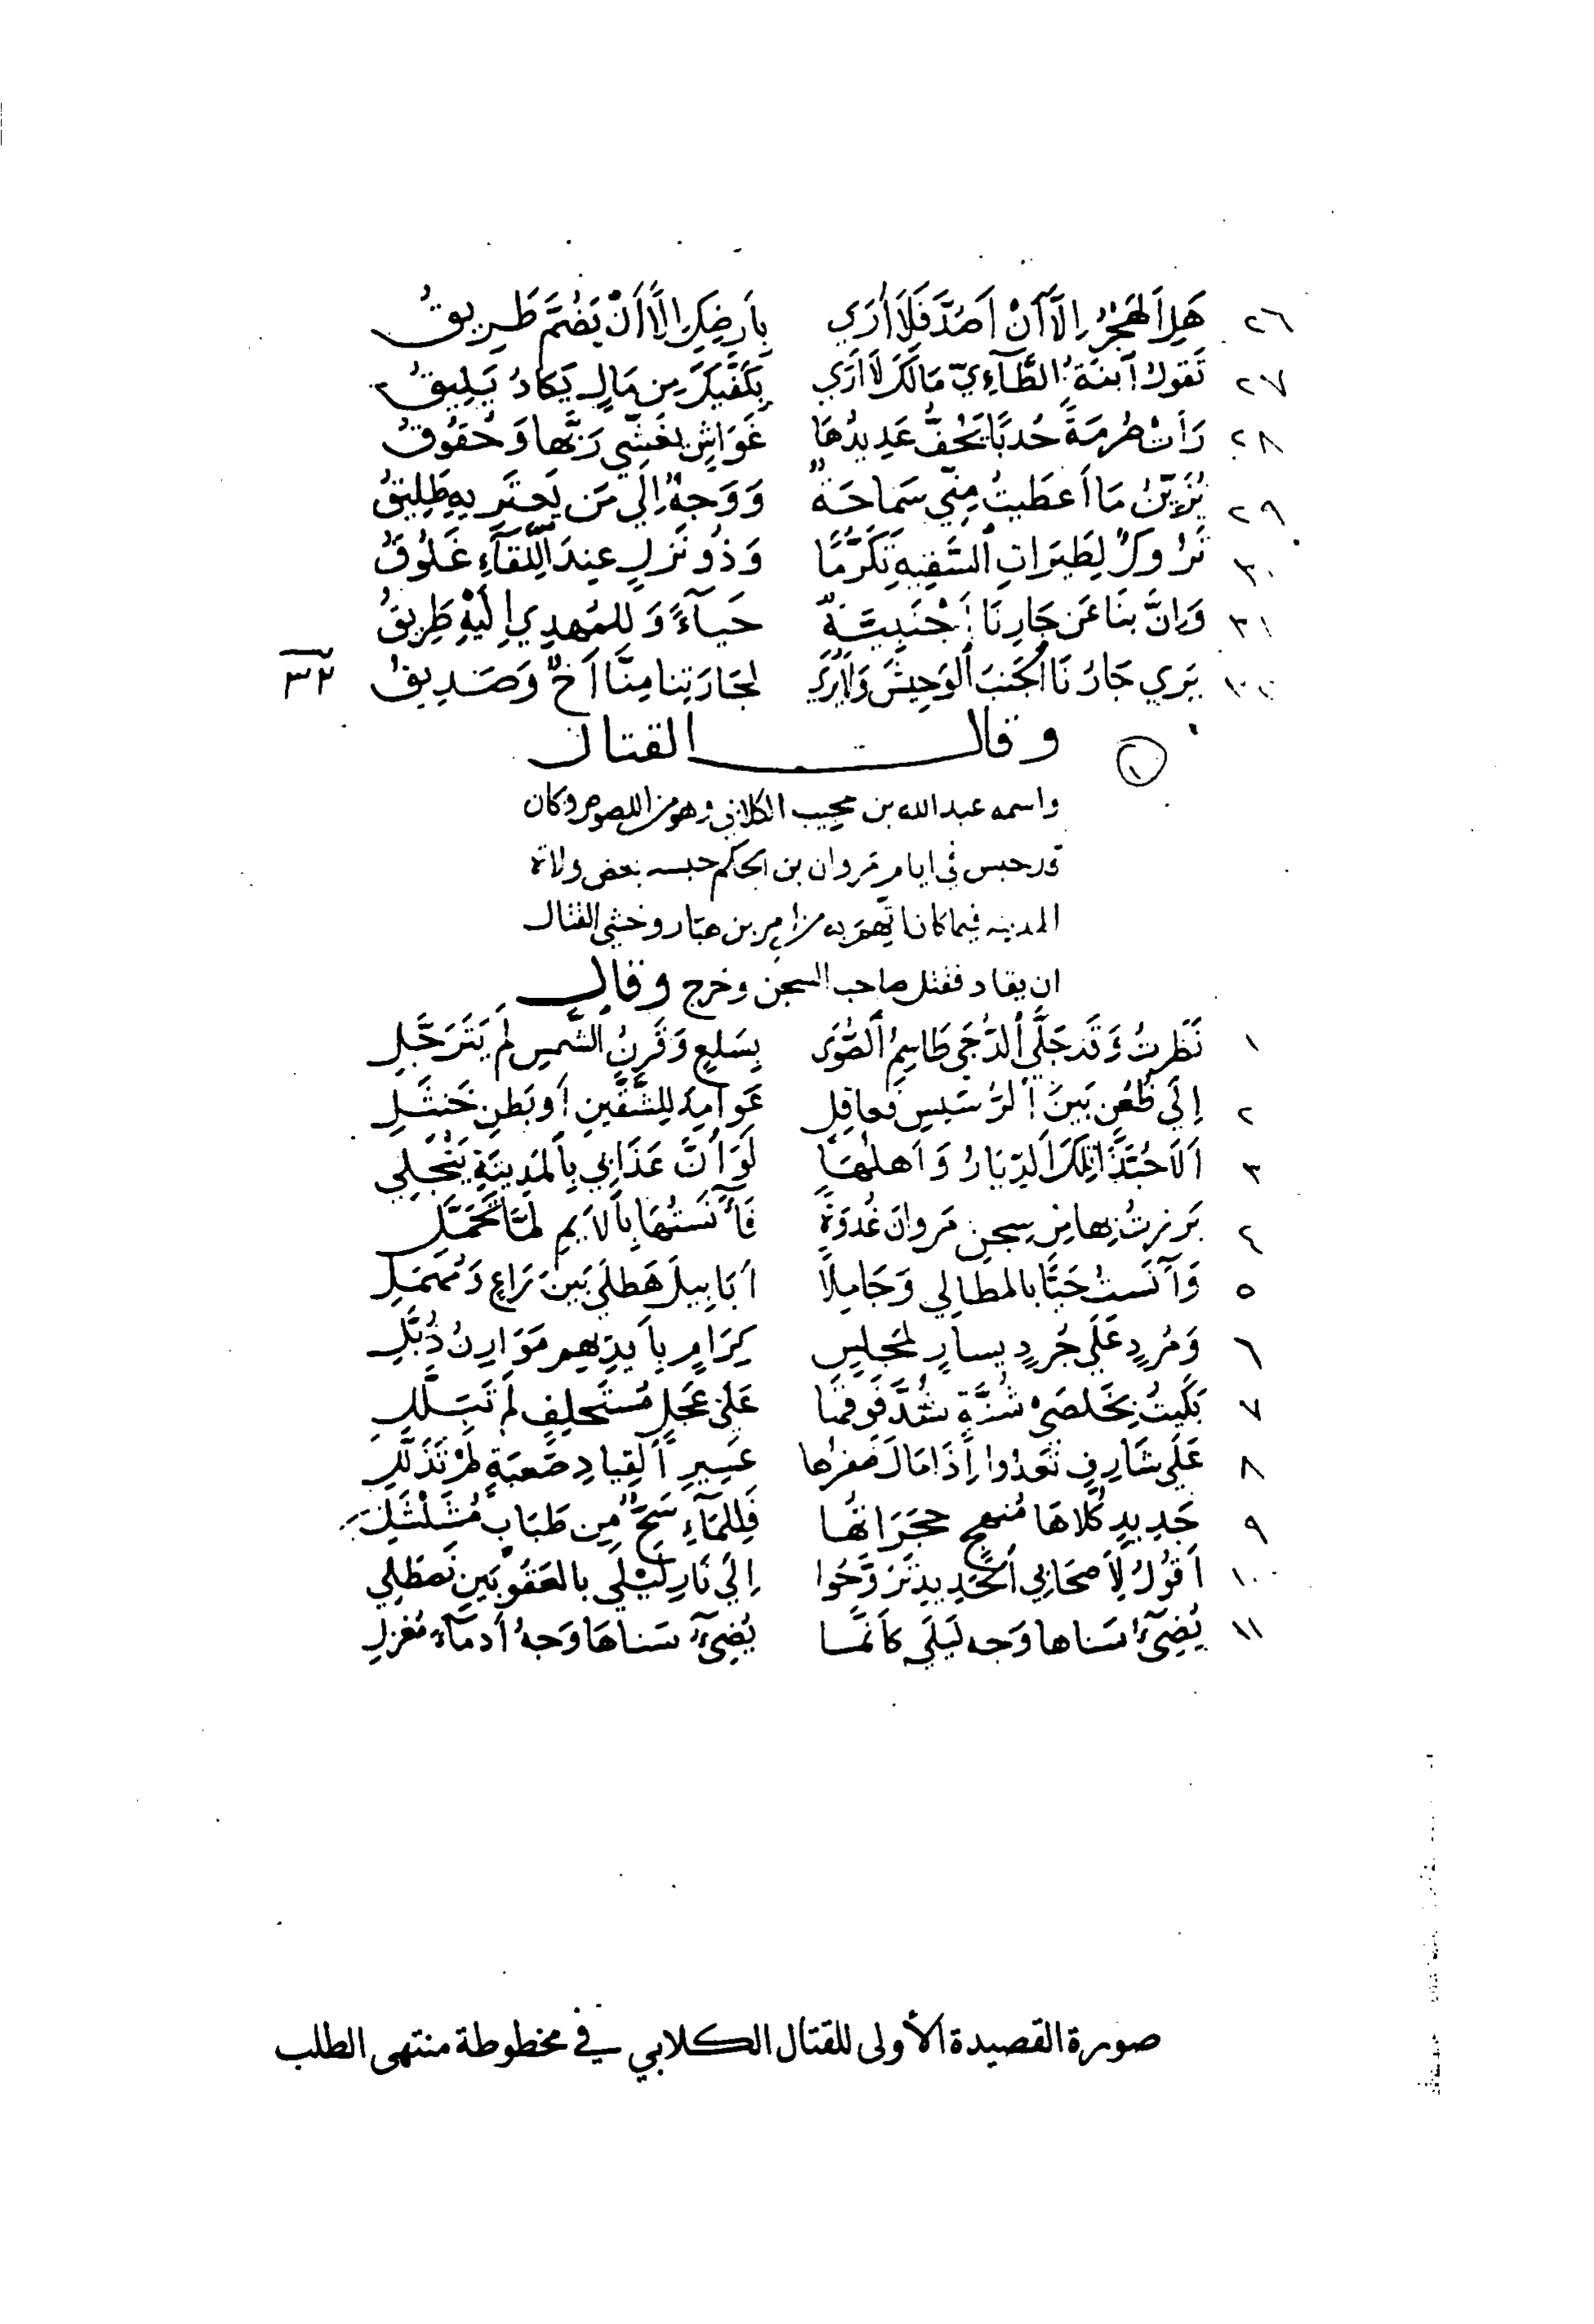 ٢٦ هَلِ ٱلهَجْرُ إِلَّا أَنْ أَصُدَّ فَلَا أُرَي بِأَرضِكِ إِلَّا أَنْ يَضُمَّ طَرِيقُ
٢٧ تَقولُ ٱبنَةُ الطَّآءِيِّ مَالَكَ لَا أَرَي بِكَفَّيكَ مِن مَالٍ يَكَادُ يَلِيقُ
٢٨ رَأَتْ صِرمَةً حُدبًا يَحُفُّ عَدِيدُهَا غَوَاشٍ يَغَشِّي رَبَّها وَحُقُوقُ
٢٩ يُزَيِّنُ مَا أَعطَيتُ مِنِّي سَمَاحَةٌ وَوَجهٌ إِلَي مَن يَعتَرِيهِ طَلِيقُ
٣٠ تَرُوكٌ لِطَيرَاتِ ٱلسَّفِيهِ تَكَرُّمًا وَذُو نَزَلٍ عِندَ ٱللِّقَآءِ غَلُوقُ
٣١ وَإِنَّ بنَا عَن جَارِنَا أَجْنَبِيَّةً حَيآءً وَلِلمُهدِي إِلَيْهِ طَرِيقُ
٣٢ يَرَي جَارُنَا ٱلجَنبَ ٱلوَحِيشَ وَلَا يَرَي لِجَارَتِنا مِنَّا أَخٌ وَصَدِيقُ ٣٢
وقال القتال
١
واسمه عبد الله بن مجيب الكلابي وهو من اللصوص وكان
قد حبس في ايام مروان بن الحكم حبسه بعض ولاة
المدينه فيما كان اتهم به من امر بن هبار وخشي القتال
ان يقاد فقتل صاحب السجن وخرج وقال
١ نَظَرتُ وَقَد جَلَّي ٱلدُّجَى طَاسِمُ ٱلصُّوَى بِسَلعٍ وَقَرنُ الشَّمسِ لَم يَتَرَجَّلِ
٢ إِلَي ظُعُنٍ بَينَ ٱلرُّسَيسِ فَعاقِلٍ عَوَامِدَ لِلشِّقَّينِ أَو بَطنِ خَنثَلِ
٣ أَلَا حَبَّذَا تِلكَ ٱلدِّيَارُ وَأَهلُهَا لَوَ أَنَّ عَذَابِي بِٱلمَدِينَةِ يَنْجَلِي
٤ بَرزتُ بِها مِن سِجنِ مَروانَ غُدوَةً فَآنَستُهَا بِٱلأَيمِ لَمَّا تَحَمَّلِ
٥ وَآنَستُ حَيًّا بالمَطَالي وَجَامِلًا أَبَابِيلَ هَطلَي بَينَ رَاعٍ وَمُهمَلِ
٦ وَمُردٍ عَلَي جُردٍ يسارٍ لمَجلِسِ كِرَامٍ بِأَيدِيهِم مَوَارِنُ ذُبَّلِ
٧ بَكَيتُ بِخَلصَيْ شَنَّةٍ شُدَّ فَوقَها عَلَى عَجَلٍ مُستَحلِفٍ لَم تَبَلَّلِ
٨ عَلَي شَارِفٍ تَعدُوا إِذَا مَالَ ضفرها عَسِيرِ ٱلقِيادِ صَعبَةٍ لَم تَذَلَّلِ
٩ جَدِيدٍ كُلَاهَا مُنهِجٍ حجَرَاتُها فَلِلمَآءِ سَحٌّ مِن طَبَابٍ مُشَلْشَلِ
١٠ أَقُولُ لِأَصحَابِي ٱلحَدِيدَ تَرَوَّحُوا إِلَي نَارِ لَيْلَي بالعَقُوبَينِ نَصطَلِي
١١ يُضِيءُ سَناها وَجه لَيلَي كَأَنَّمَا يُضِيءُ سَناهَا وَجهُ أَدمَآءَ مُغزِلِ
صورة القصيدة الأولى للقتال الكلابي في مخطوطة منتهى الطلب